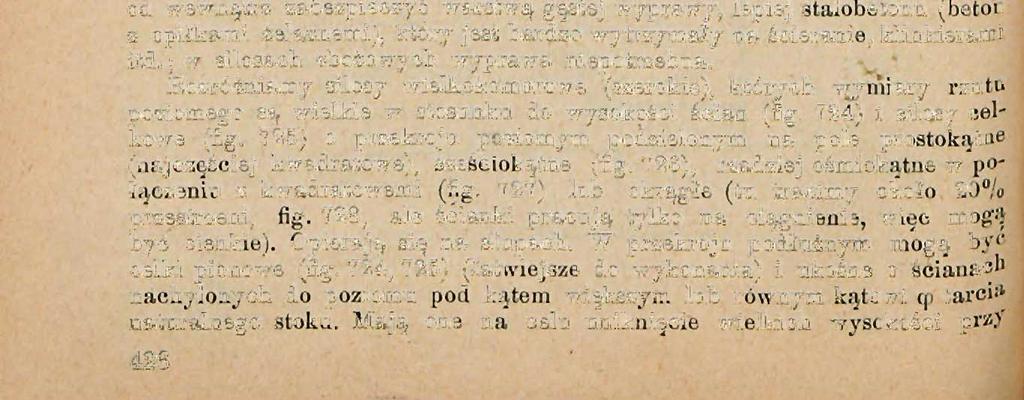 od wewnątrz zabezpieczyć warstwą gęstej wyprawy, lepiej stalobetonu (beton
z opiłkami żelaznemi), który jest bardzo wytrzymały na ścieranie, klinkierami
itd.; w silosach zbożowych wyprawa niepotrzebna.
Rozróżniamy silosy wielkokomorowe (szerokie), których wymiary rzutu
poziomego są wielkie w stosunku do wysokości ścian (fig. 724) i silosy cel-
kowe (fig. 725) o przekroju poziomym podzielonym na pola prostokątne
(najczęściej kwadratowe), sześciokątne (fig. 726), rzadziej ośmiokątne w po-
łączeniu z kwadratowemi (fig. 727) lub okrągłe (tu tracimy około 20%
przestrzeni, fig. 728, ale ścianki pracują tylko na ciągnienie, więc mogą
być cienkie). Opierają się na słupach. W przekroju podłużnym mogą być
celki pionowe (fig. 724, 725) (łatwiejsze do wykonania) i ukośne o ścianach
nachylonych do poziomu pod kątem większym lub równym kątowi φ tarcia
naturalnego stoku. Mają one na celu uniknięcie wielkich wysokości przy
426